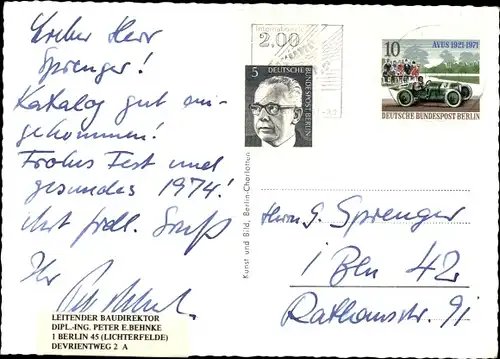 Lieber Herr
Sprenger!
Katalog gut ein-
gekommen!
Frohes Fest und
gesundes 1974!
Mit frdl. Gruß
Ihr
LEITENDER BAUDIREKTOR
DIPL.-ING. PETER E. BEHNKE
1 BERLIN 45 (LICHTERFELDE)
DEVRIENTWEG 2 A
Kunst und Bild, Berlin-Charlotten
2,00
5
DEUTSCHE
BUNDESPOST BERLIN
10 AVUS 1921-1971
DEUTSCHE BUNDESPOST BERLIN
Herrn G. Sprenger
1 Bln 42
Rathausstr. 91